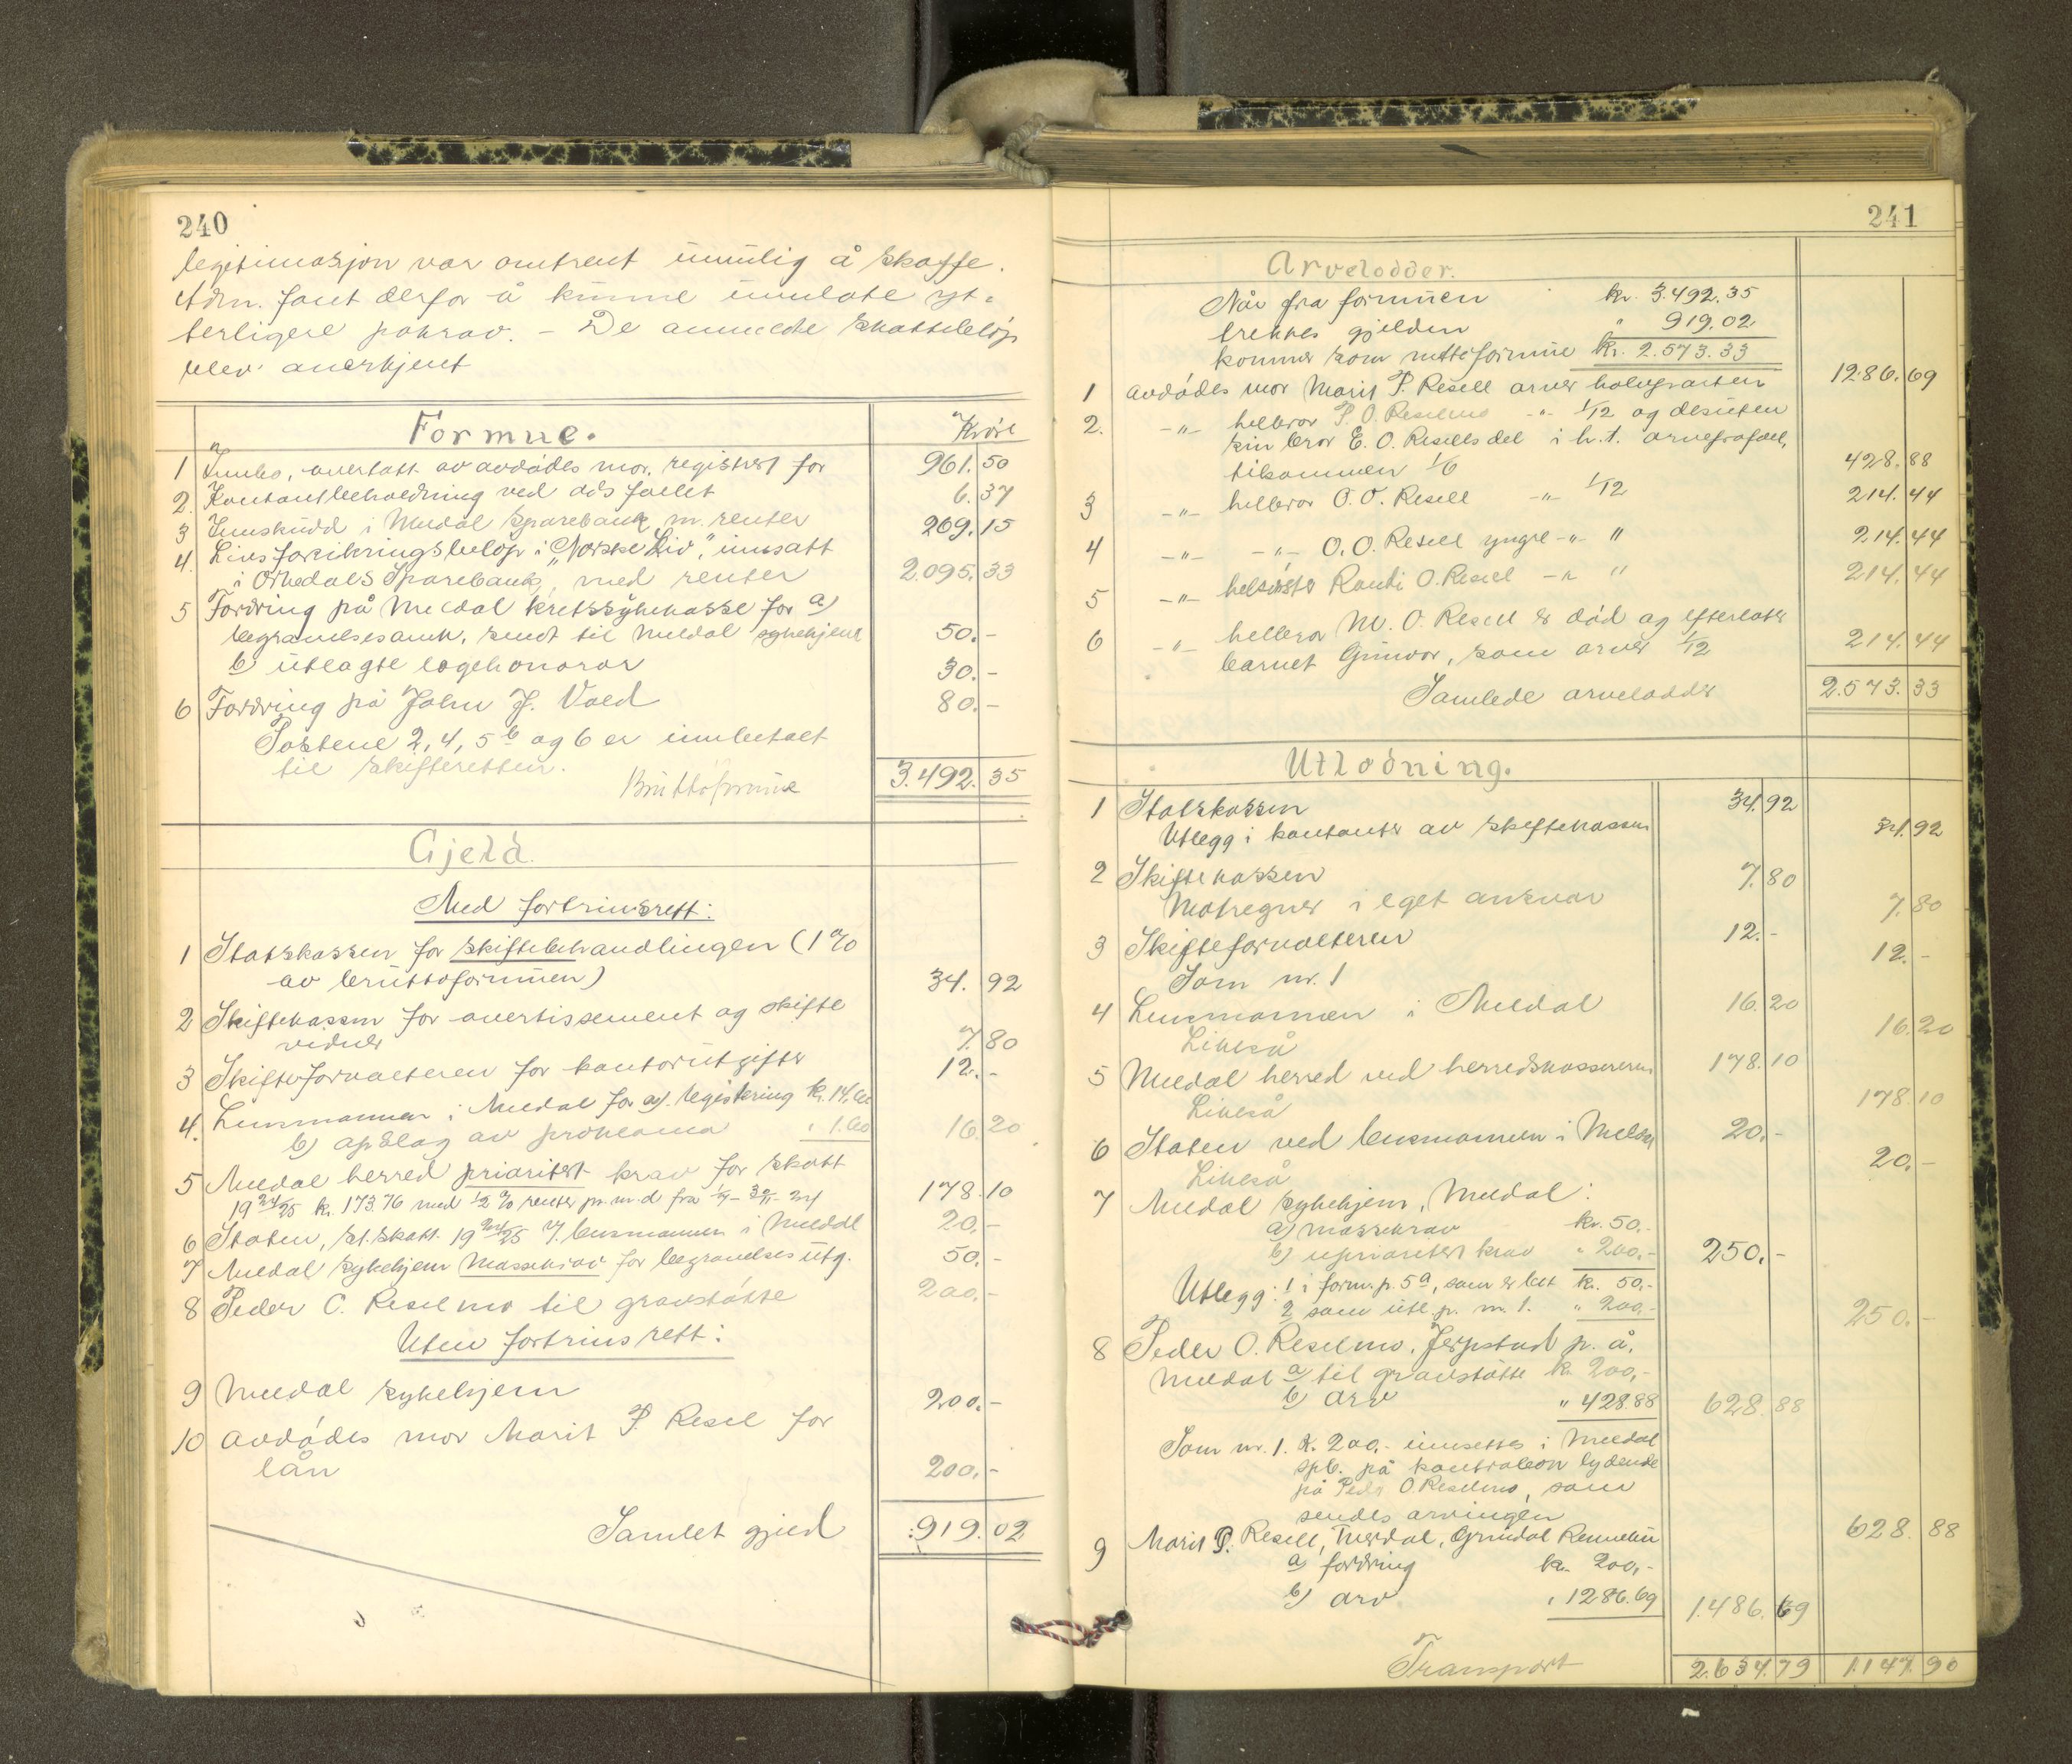 240
legitimasjon var omtrent umulig å skaffe.
Adm. fant derfor å kunne unnlate yt-
terligere påkrav. – De anmeldte skattebeløp
blev anerkjent
Formue.
Krone
1 Innbo, overtatt av avdødes mor, registrert for 961.50
2. Kontantbeholdning ved dødsfallet 6.37
3 Innskudd i Meldal Sparebank m. renter 269.15
4. Livsforsikringsbeløp i „Norske Liv", innsatt
i Orkedals Sparebank, med renter 2.095.33
5 Fordring på Meldal kretssykekasse for a)
begravelsesomk. sendt til Meldal sykehjem 50.-
b) utlagte legehonorar 30.-
6 Fordring på John J. Vold 80.-
Postene 2, 4, 5 b og 6 er innbetalt
til skifteretten.
Bruttoformue 3.492.35
Gjeld.
Med fortrinsrett:
1 Statskassen for skiftebehandlingen (1%
av bruttoformuen) 34.92
2 Skiftekassen for avertissement og skifte
vidner 7.80
3 Skifteforvalteren for kontorutgifter 12.-
4. Lensmannen i Meldal for a) registrering kr. 14.60
b) opslag av proklama " 1.60 16.20
5 Meldal herred prioritert krav for skatt
19 24/25 kr. 173.76 med ½ % renter pr. m.d. fra 178.10
6 Staten, st.skatt. 19 24/25 v/ lensmannen i Meldal 20.-
7 Meldal sykehjem massekrav for begravelsesutg. 50.-
8 Peder O. Reselmo til gravstøtte 200.-
Uten fortrinsrett:
9 Meldal sykehjem 200.-
10 Avdødes mor Marit P. Resel for
lån 200.-
Samlet gjeld 919.02
241
Arvelodder.
Når fra formuen kr. 3.492.35
trekkes gjelden " 919.02
kommer som nettoformue kr. 2.573.33
1 Avdødes mor Marit P. Resell arver halvparten 1286.69
2. -"- helbror P. O. Reselmo -"- 1/12 og desuten
sin bror E. O. Resells del i h.t. arvefrafall,
tilsammen 1/6 428.88
3 -"- helbror O. O. Resell -"- 1/12 214.44
4 -"- -"- O. O. Resell yngre -"- " 214.44
5 -"- helsøster Randi O. Resell -"- " 214.44
6 -"- helbror M. O. Resell er død og efterlater
barnet Gunvor, som arver 1/12 214.44
Samlede arvelodder 2.573.33
Utlodning.
1 Statskassen 34.92
Utlegg i kontanter av skiftekassen 34.92
2 Skiftekassen 7.80
Motregner i eget ansvar 7.80
3 Skifteforvalteren 12.-
Som nr. 1 12.-
4 Lensmannen i Meldal 16.20
Likeså 16.20
5 Meldal herred ved herredskassereren 178.10
Likeså 178.10
6 Staten ved lensmannen i Meldal 20.-
Likeså 20.-
7 Meldal sykehjem, Meldal:
a) massekrav kr. 50.-
b) uprioritert krav " 200.- 250.-
Utlegg: 1 i form. p. 5a, som er bet kr. 50.-
2 som utl. p. nr. 1. " 200.- 250.-
8 Peder O. Reselmo, Jerpstad p. å.
Meldal a) til gravstøtte kr. 200.-
b) arv " 428.88 628.88
Som nr. 1. Kr. 200.- innsettes i Meldal
spb. på kontrabok lydende
på Peder O Reselmo, som
sendes arvingen 628.88
9 Marit P. Resell, Grindal, Rennebu
a) fordring kr. 200.-
b) arv " 1286.69 1486.69
Transport 2.634.79 1.147.90